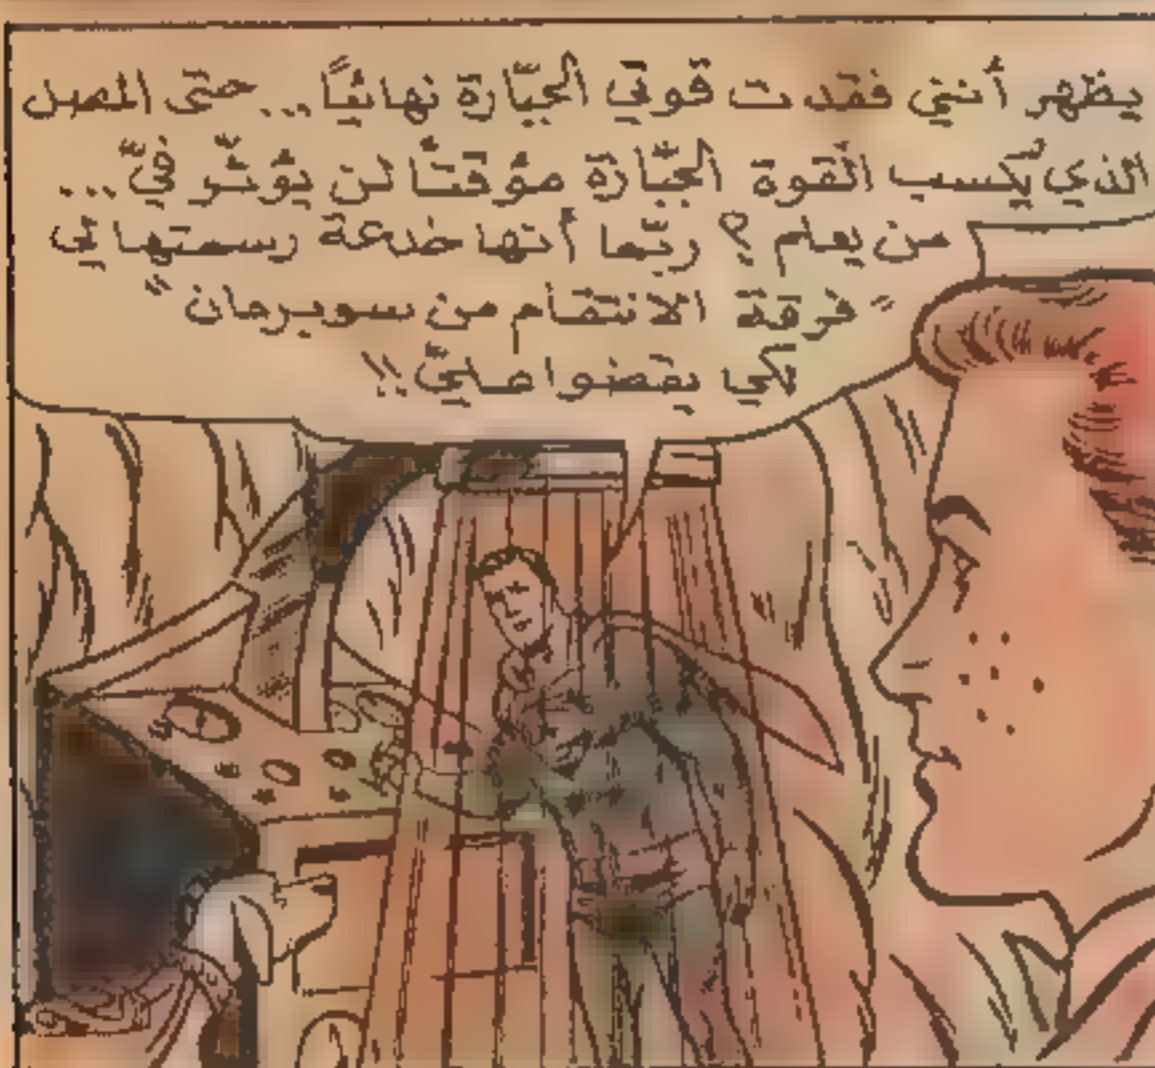 يظهر أنني فقدت قوتي الجبّارة نهائيًا... حتى المصل
الذي يُكسب القوة الجبّارة مؤقتًا لن يؤثّر فيّ...
من يعلم؟ ربّما أنها خدعة رسمتها لي
"فرقة الانتقام من سوبرمان"
لكي يقضوا عليّ!!